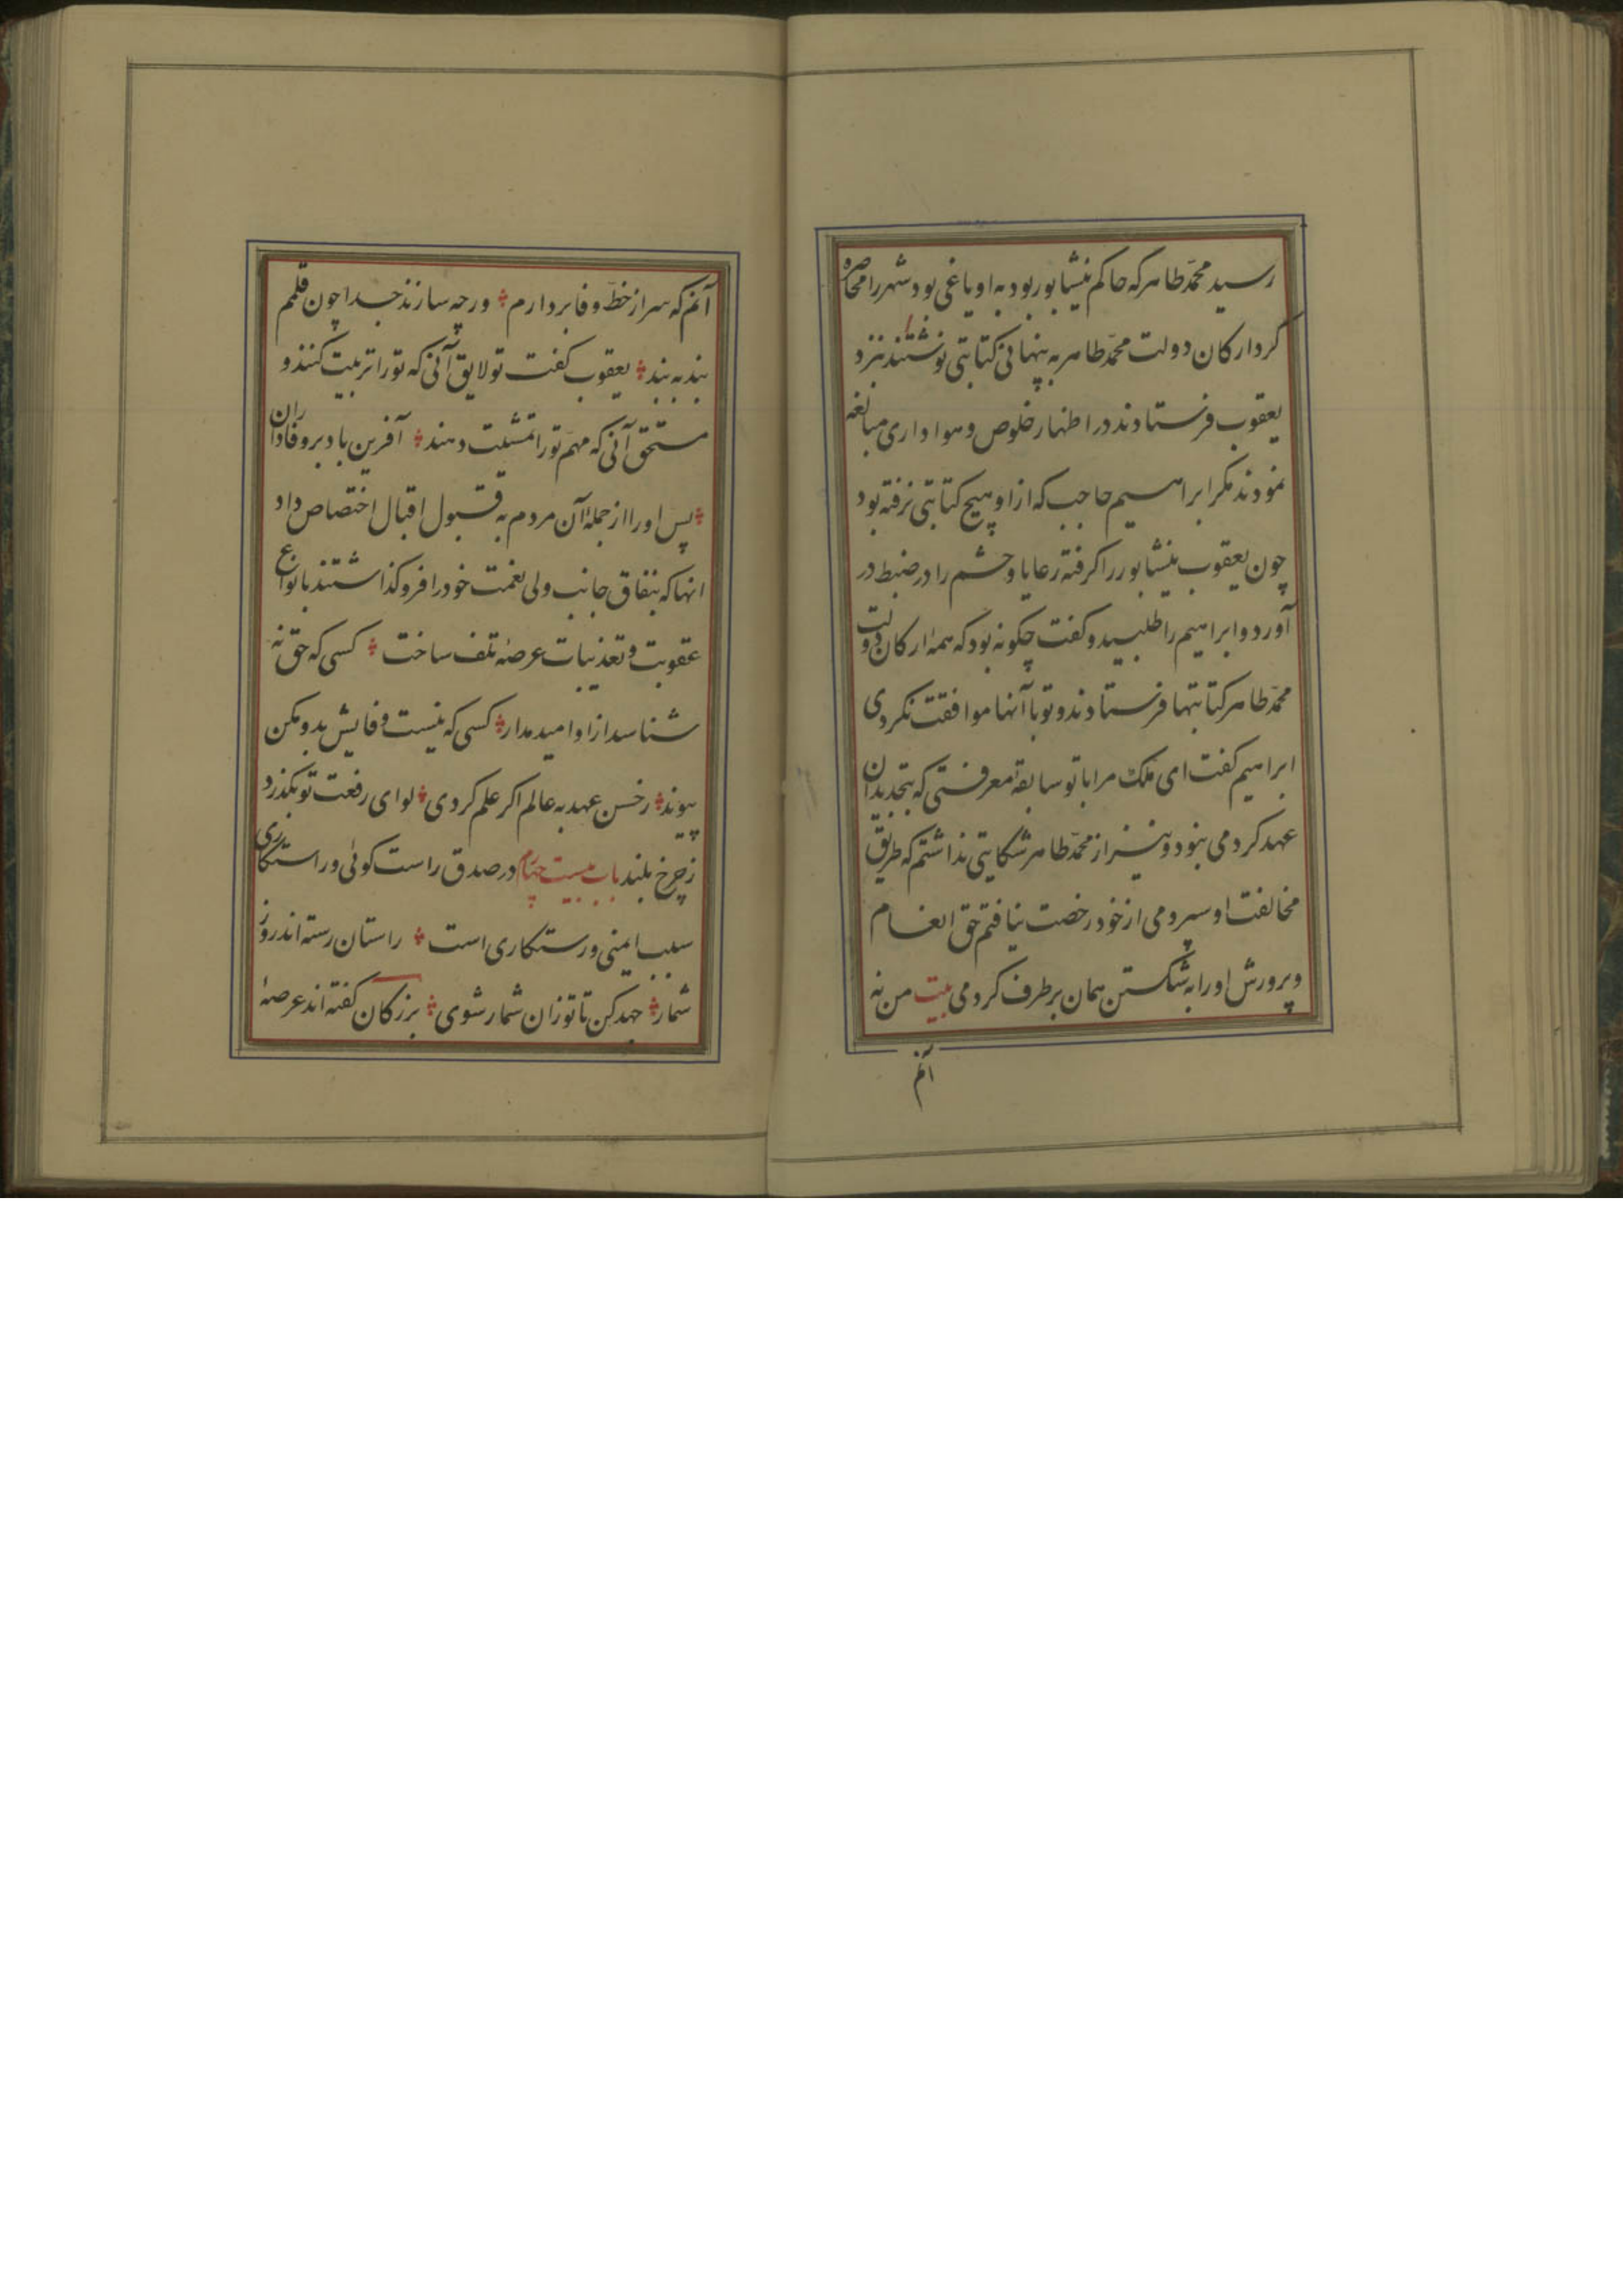 رسید محمّد طاهر که حاکم نیشابور بود به او یاغی بود شهر را محاصره
کرد ارکان دولت محمّد طاهر به پنهانی کتابتی نوشتند نزد
یعقوب فرستادند در اظهار خلوص و هواداری مبالغه
نمودند مکر ابراهیم حاجب که از او هیچ کتابتی نرفته بود
چون یعقوب نیشابور را کرفته رعایا و حشم را در ضبط در
آورد و ابراهیم را طلبید و کفت چکونه بود که همهٔ ارکان دولت
محمّد طاهر کتابتها فرستادند و تو با آنها موافقت نکردی
ابراهیم کفت ای ملک مرا با تو سابقهٔ معرفتی که بتجدید آن
عهد کردمی نبود و نیز از محمّد طاهر شکایتی نداشتم که طریق
مخالفت او سپردمی از خود رخصت نیافتم حق انعام
و پرورش او را به شکستن همان برطرف کردمی بیت من نه
آنم
آنم که سر از خطّ وفا بردارم ورچه سازند جدا چون قلمم
بند به بند یعقوب کفت تو لایق آنی که تو را تربیت کنند و
مستحق آنی که مهمّ تو را تمشیت دهند آفرین باد بر وفاداران
پس او را از جملهٔ آن مردم به قبول اقبال اختصاص داد
انها که بنفاق جانب ولی نعمت خود را فرو کذاشتند بانواع
عقوبت و تعذیبات عرصهٔ تلف ساخت کسی که حق نه
شناسد از او امید مدار کسی که نیست وفایش بدو مکن
پیوند ز حسن عهد به عالم اکر علم کردی لوای رفعت تو بکذرد
ز چرخ بلند باب بیست چهام در صدق راست کوئی و راستکاری
سبب ایمنی و رستکاری است راستان رسته اند روز
شمار جهد کن تا تو زان شمار شوی بزرکان کفته اند عرصهٔ